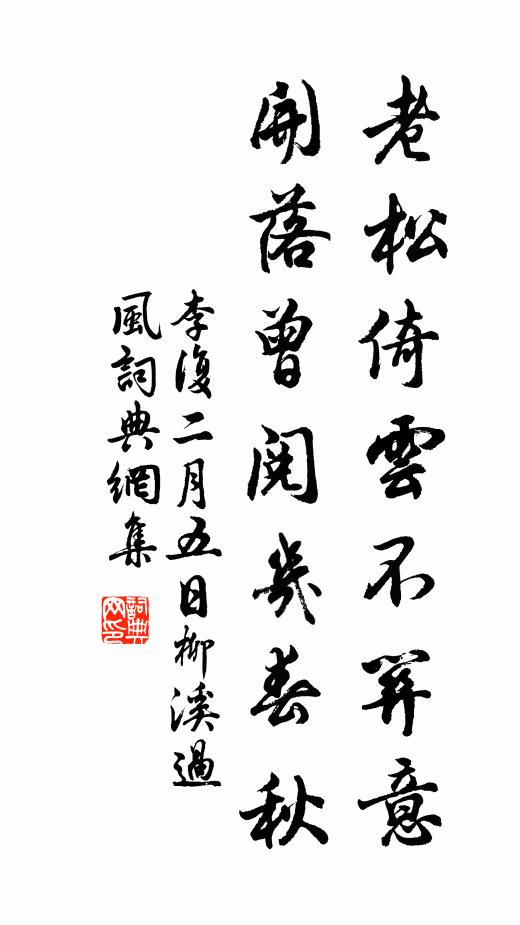 老松倚雲不筭意
開落曾閱幾春秋
李復二月五日柳溪過
風詞典網集
詞典網印